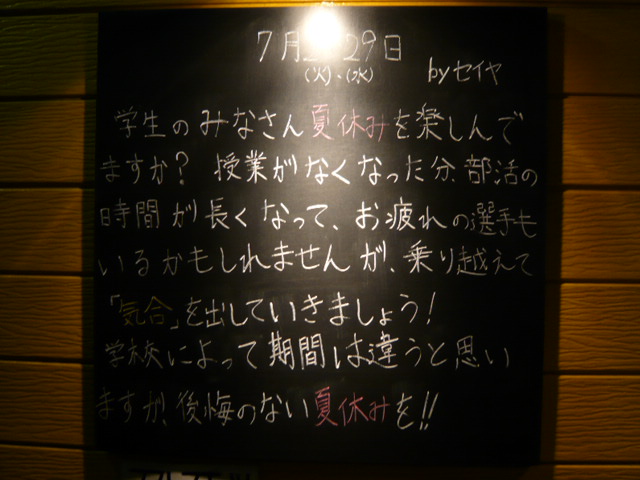 7月 29日
(火)・(水) byセイヤ
学生のみなさん夏休みを楽しんで
ますか? 授業がなくなった分、部活の
時間が長くなって、お疲れの選手も
いるかもしれませんが、乗り越えて
「気合」を出していきましょう!
学校によって期間は違うと思い
ますが、後悔のない夏休みを!!